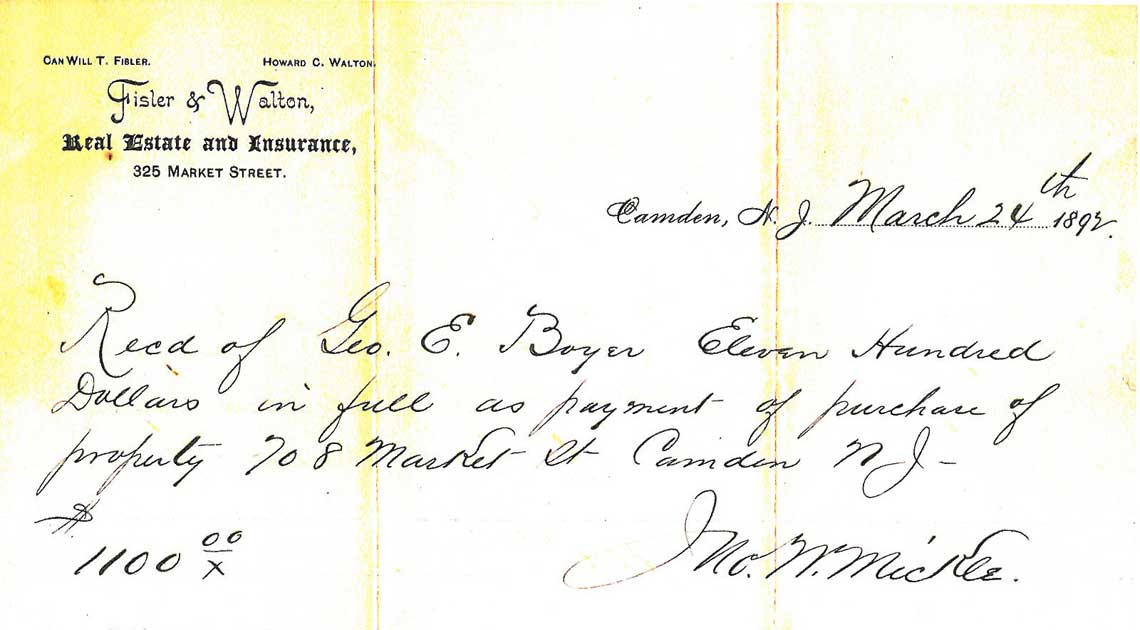 CAN WILL T. FISLER. HOWARD C. WALTON.
Fisler & Walton,
Real Estate and Insurance,
325 MARKET STREET.
Camden, N. J. March 24th 1892.
Recd of Geo. E. Boyer Eleven Hundred
Dollars in full as payment of purchase of
property 708 Market St Camden NJ-
$
1100 00/x
Jno. W. Mickle.